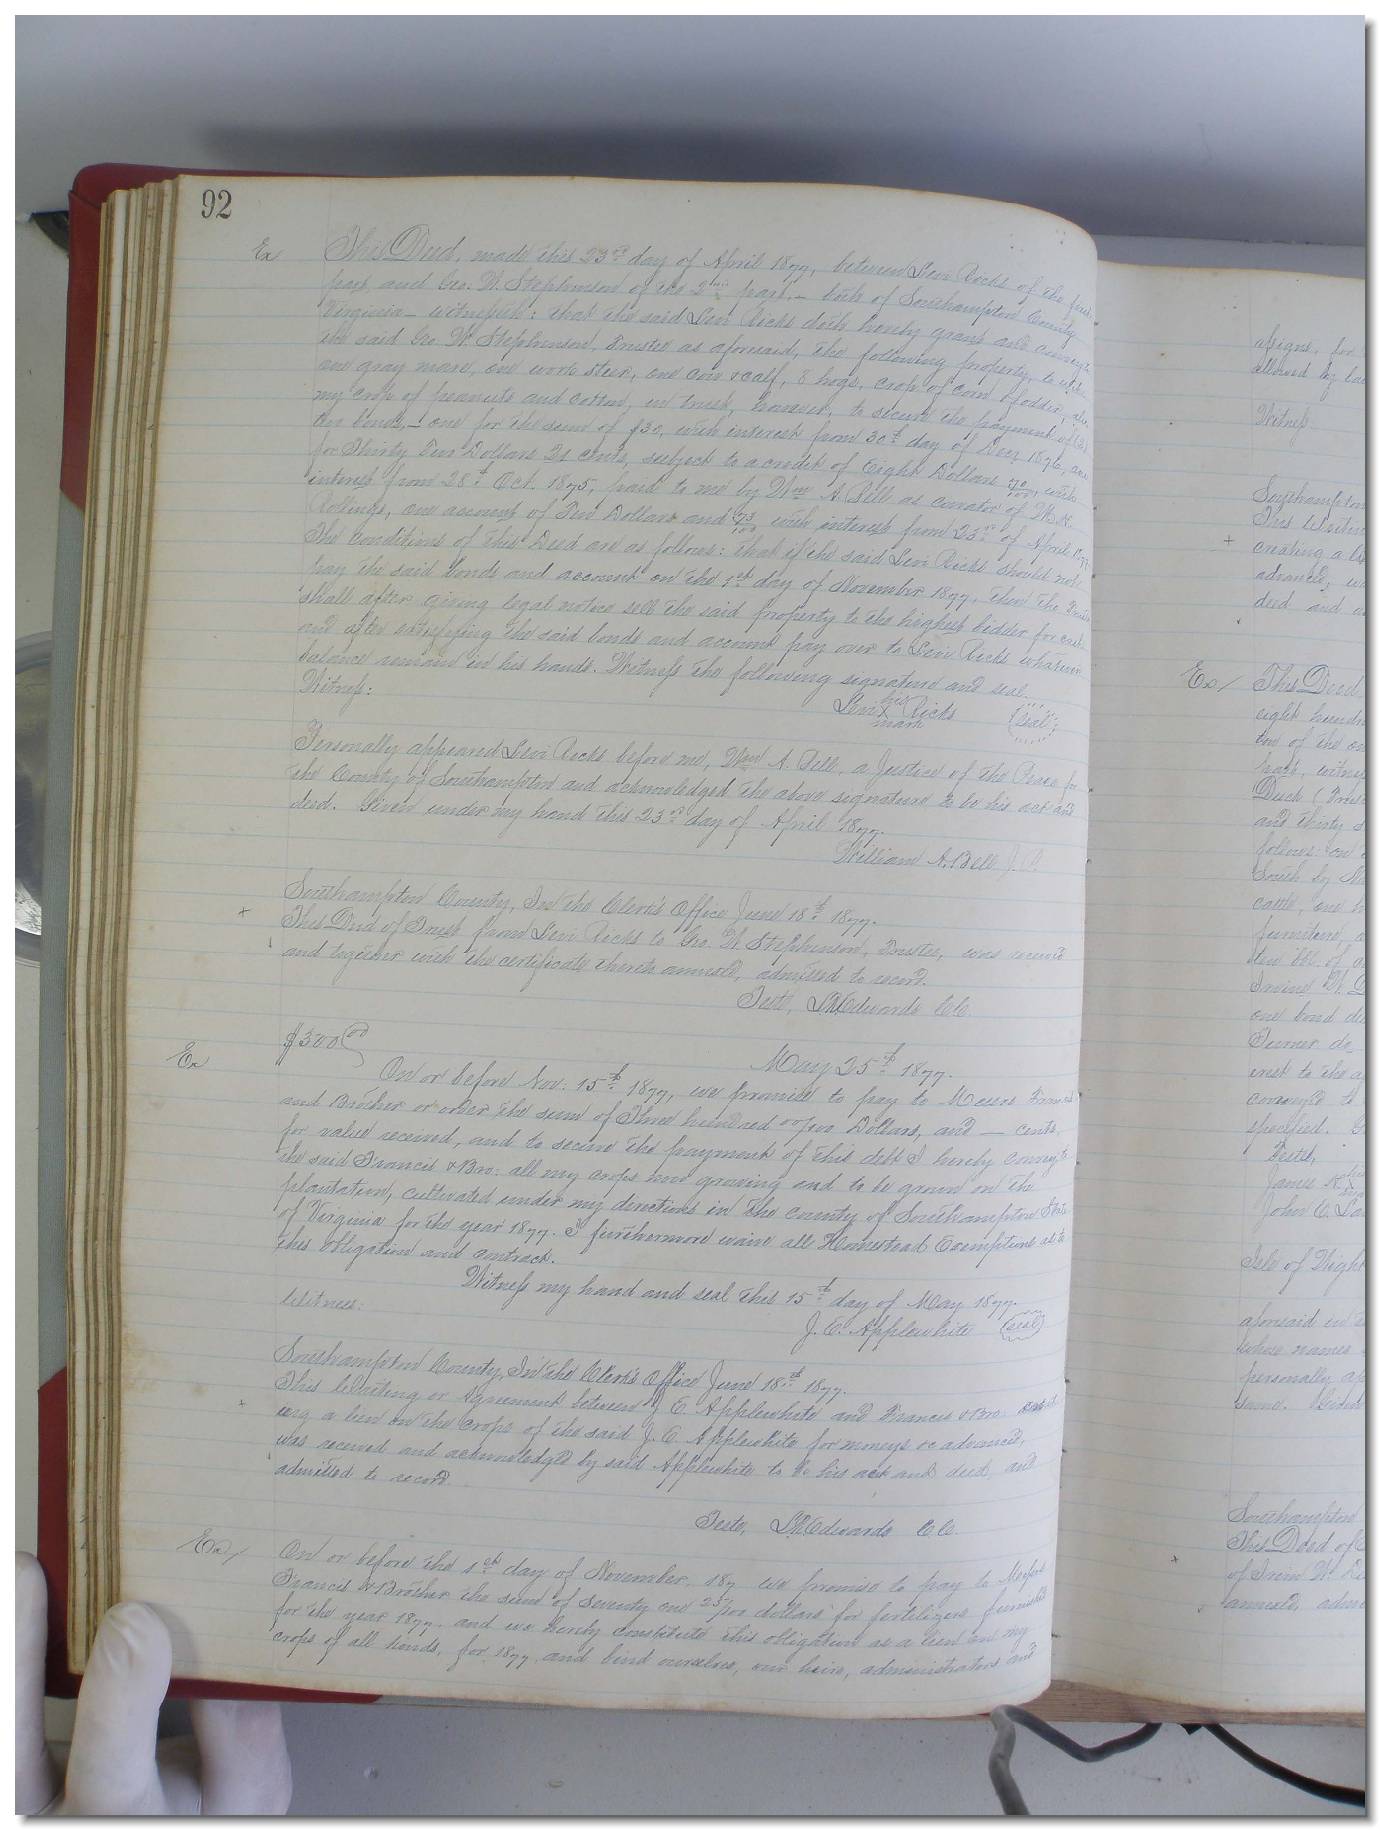 92
Ex This Deed, made this 23rd day of April 1877, between Levi Ricks of the first
part and Geo. W. Stephenson of the 2nd part, - both of Southampton County
Virginia - witnesseth: that the said Levi Ricks doth hereby grant and convey to
the said Geo. W. Stephenson, Trustee as aforesaid, the following property, to wit:
one gray mare, one work steer, one cow & calf, 8 hogs, crop of corn & fodder, also
my crop of peanuts and cotton, in trust, however, to secure the payment of (2)
two bonds, - one for the sum of $30, with interest from 30th day of Decr 1876, and
for Thirty Two Dollars 21 cents, subject to a credit of Eight Dollars 70/100, with
interest from 28th Oct. 1875, paid to me by Wm A. Bell as curator of W. H.
Rollings, one account of Two Dollars and 73/100 with interest from 23rd of April 1877
The conditions of this Deed are as follows: that if the said Levi Ricks should not
pay the said bonds and account on the 1st day of November 1877, then the Trustee
shall after giving legal notice sell the said property to the highest bidder for cash
and after satisfying the said bonds and account pay over to Levi Ricks whatever
balance remain in his hands. Witness the following signature and seal.
Witness: Levi his x mark Ricks (seal)
Personally appeared Levi Ricks before me, Wm A. Bell, a Justice of the Peace for
the County of Southampton and acknowledged the above signature to be his act and
deed. Given under my hand this 23rd day of April 1877.
William A. Bell J.P.
Southampton County, In the Clerk's Office June 18th 1877.
+ This Deed of Trust from Levi Ricks to Geo. W. Stephenson, Trustee, was received
and together with the certificate thereto annexed, admitted to record.
Teste, L R Edwards C.C.
$300 00
Ex May 25th 1877.
On or before Nov: 15th 1877, we promise to pay to Messrs Francis
and Brother or order the sum of Three hundred 00/100 Dollars, and — cents,
for value received, and to secure the payment of this debt I hereby convey to
the said Francis & Bro: all my crops now growing and to be grown on the
plantation, cultivated under my directions in the county of Southampton State
of Virginia for the year 1877. I furthermore waive all Homestead Exemptions as to
this obligation and contract.
Witness my hand and seal this 15th day of May 1877.
Witness: J. E. Applewhite (seal)
Southampton County, In the Clerk's Office June 18th 1877.
+ This Writing or Agreement between J. E. Applewhite and Francis & Bro: creat
ing a lien on the crops of the said J. E. Applewhite for moneys &c advanced,
was received and acknowledged by said Applewhite to be his act and deed, and
admitted to record.
Teste, L R Edwards C.C.
Ex On or before the 1st day of November, 187 we promise to pay to Messrs
Francis & Brother the sum of Seventy one 25/100 dollars for fertilizers furnished
for the year 1877, and we hereby constitute this obligation as a lien on my
crops of all kinds, for 1877, and bind ourselves, our heirs, administrators and
assigns, for
allowed by law
Witness
Southampton
This Writing
+ creating a lien
advanced,
deed and
Ex This Deed
eight hundr
ton of the on
part, witnes
Duck (Trus
and thirty
follows: on
South by
cattle, one
furniture,
ten bbl. of
Irvine W. D
one bond
Turner de
erest to the
conveyed to
specified.
Teste,
James R.
John C.
Isle of Wight
aforesaid
whose names
personally ap
same. Given
Southampton
+ This Deed of
of Irvin W.
annexed, admi